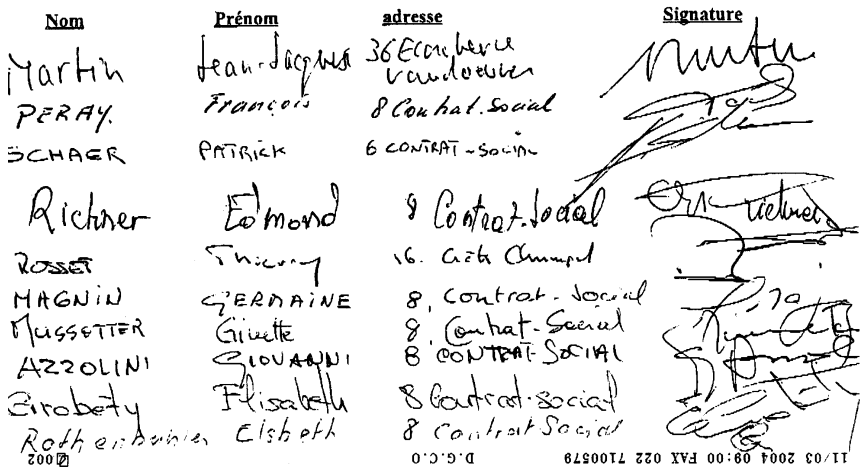 Nom Prénom adresse Signature
Martin Jean-Jacques 36 Ecorcherie Vandoeuvres
PERAY. François 8 Contrat-Social
SCHAER PATRICK 6 CONTRAT-SOCIAL
Richner Edmond 8 Contrat-Social
ROSSET Thierry 16. Crêts Champel
MAGNIN GERMAINE 8, Contrat-Social
MUSSETTER Ginette 8, Contrat-Social
AZZOLINI GIOVANNI 8 CONTRAT-SOCIAL
Elisabeth 8 Contrat-social
Elsbeth 8 Contrat Social
11/03 2004 09:00 FAX 022 7100579 D.G.C.O 002